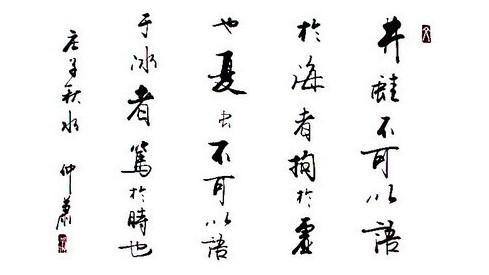 井蛙不可以語
於海者拘於虛
也夏虫不可以語
于冰者篤於時也
庄子秋水 仲肅